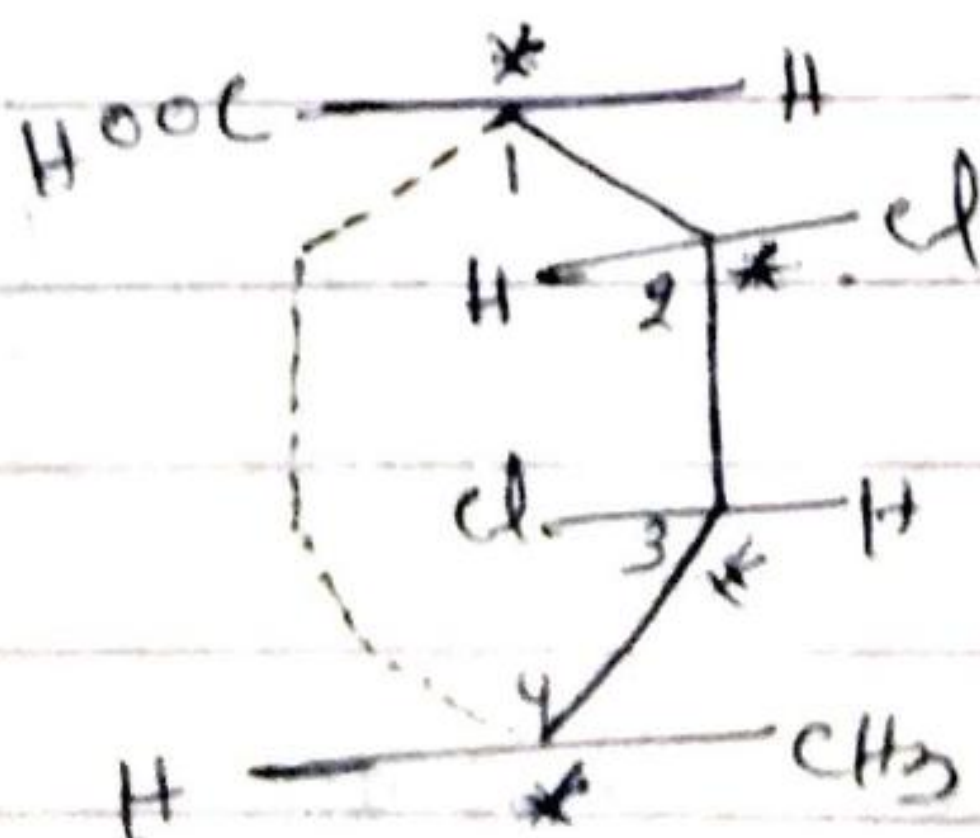 *
HOOC H
1
Cl
H 2 *
Cl 3 H
*
4
H CH3
*